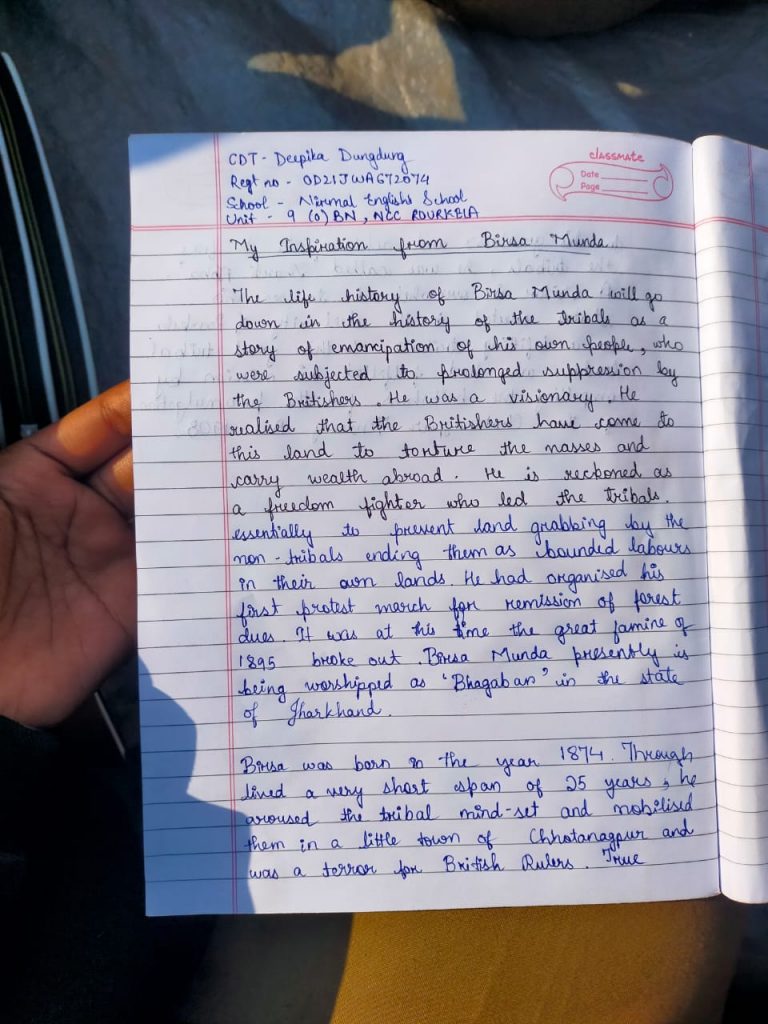 CDT - Deepika Dungdung
Regt no - OD21JWAG72074
School - Nirmal English School
Unit - 9 (O) BN, NCC ROURKELA
classmate
Date
Page
My Inspiration from Birsa Munda
The life history of Birsa Munda will go
down in the history of the tribals as a
story of emancipation of his own people, who
were subjected to prolonged suppression by
the Britishers. He was a visionary. He
realised that the Britishers have come to
this land to torture the masses and
carry wealth abroad. He is reckoned as
a freedom fighter who led the tribals.
essentially to prevent land grabbing by the
non-tribals ending them as bounded labours
in their own lands. He had organised his
first protest march for remission of forest
dues. It was at his time the great famine of
1895 broke out. Birsa Munda presently is
being worshipped as 'Bhagaban' in the state
of Jharkhand.
Birsa was born in the year 1874. Through
lived a very short span of 25 years, he
aroused the tribal mind-set and mobilised
them in a little town of Chhotanagpur and
was a terror for British Rulers. True